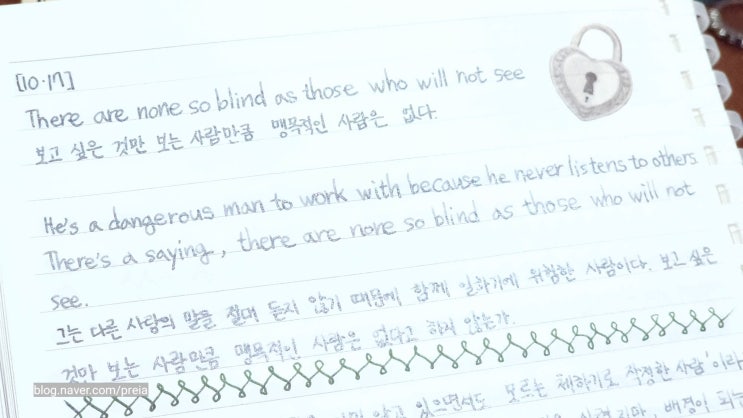 [10·17]
There are none so blind as those who will not see
보고 싶은 것만 보는 사람만큼 맹목적인 사람은 없다.
He's a dangerous man to work with because he never listens to others
There's a saying, there are none so blind as those who will not
see.
그는 다른 사람의 말을 절대 듣지 않기 때문에 함께 일하기에 위험한 사람이다. 보고 싶은
것만 보는 사람만큼 맹목적인 사람은 없다고 하지 않는가.
않고 있으면서도 모르는 체하기로 작정한 사람'이라
blog.naver.com/preia